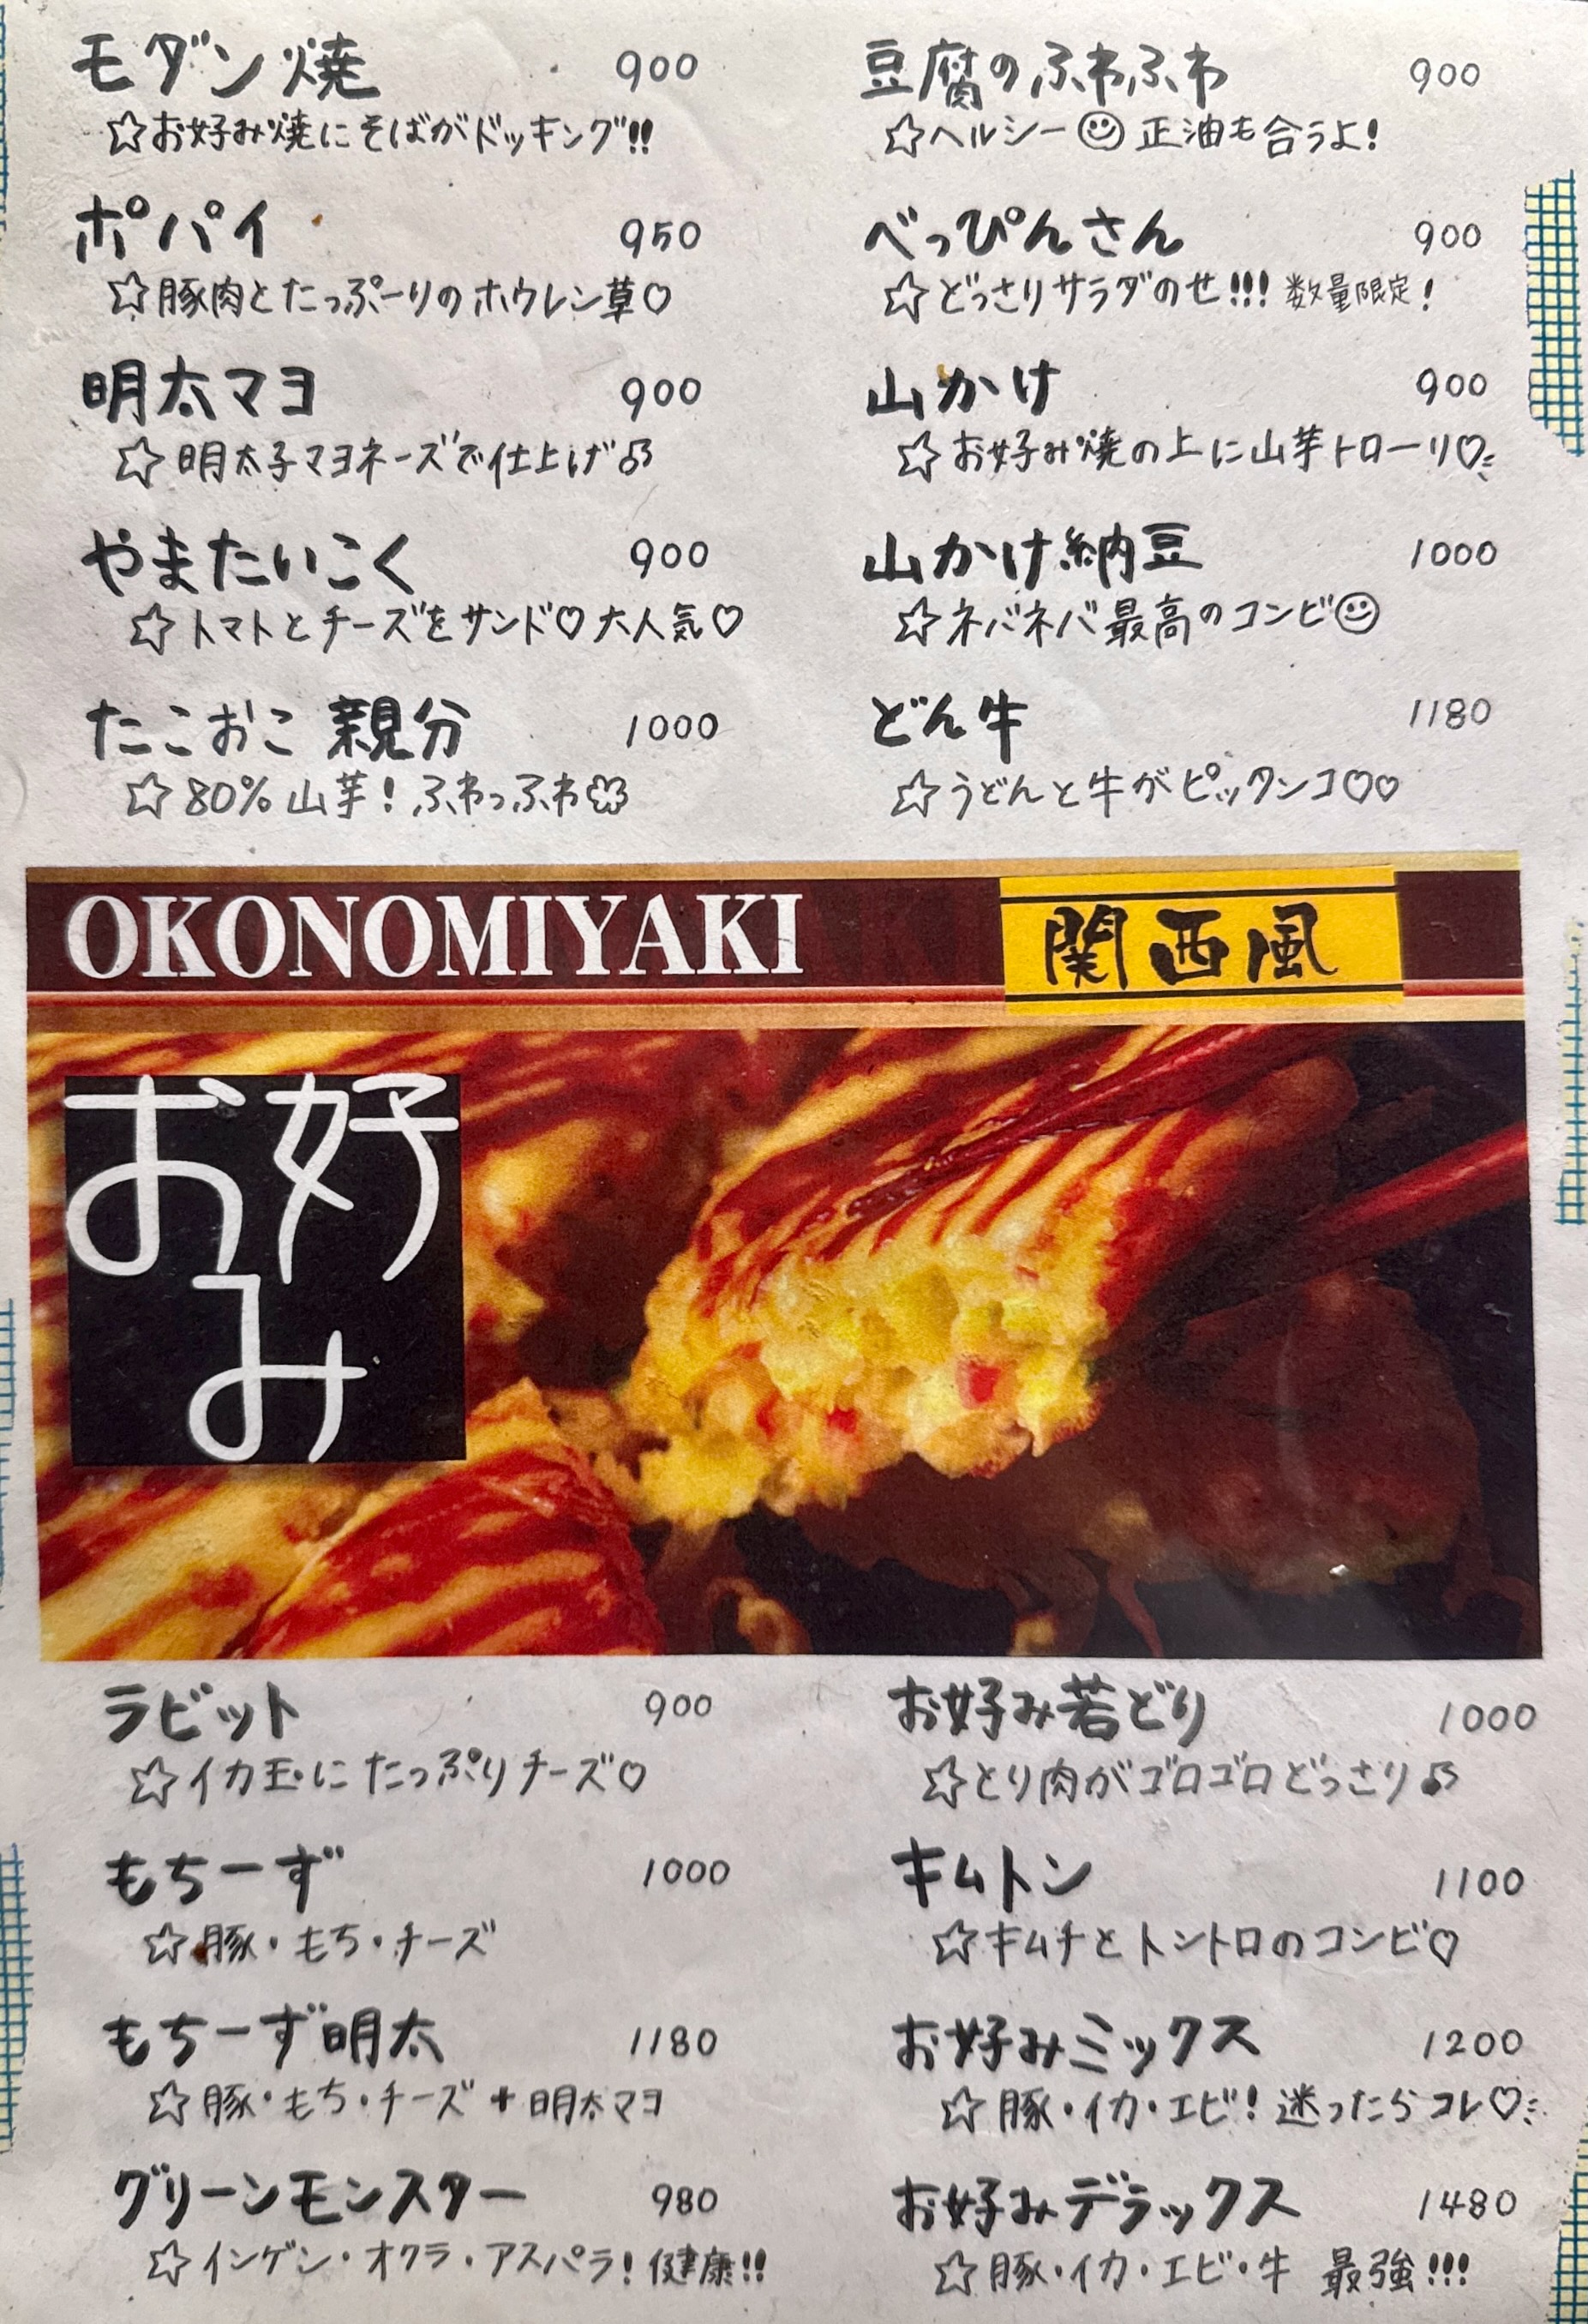 モダン焼 900
☆お好み焼にそばがドッキング!!
ポパイ 950
☆豚肉とたっぷーりのホウレン草♡
明太マヨ 900
☆明太子マヨネーズで仕上げ♫
やまたいこく 900
☆トマトとチーズをサンド♡大人気♡
たこおこ 親分 1000
☆80%山芋!ふわっふわ
豆腐のふわふわ 900
☆ヘルシー☺正油も合うよ!
べっぴんさん 900
☆どっさりサラダのせ!!! 数量限定!
山かけ 900
☆お好み焼の上に山芋トローリ♡
山かけ納豆 1000
☆ネバネバ最高のコンビ☺
どん牛 1180
☆うどんと牛がピッタンコ♡♡
OKONOMIYAKI
関西風
お好
み
ラビット 900
☆イカ玉にたっぷりチーズ♡
もちーず 1000
☆豚・もち・チーズ
もちーず明太 1180
☆豚・もち・チーズ+明太マヨ
グリーンモンスター 980
☆インゲン・オクラ・アスパラ!健康!!
お好み若どり 1000
☆とり肉がゴロゴロどっさり♫
キムトン 1100
☆キムチとトントロのコンビ♡
お好みミックス 1200
☆豚・イカ・エビ!迷ったらコレ♡
お好みデラックス 1480
☆豚・イカ・エビ・牛 最強!!!